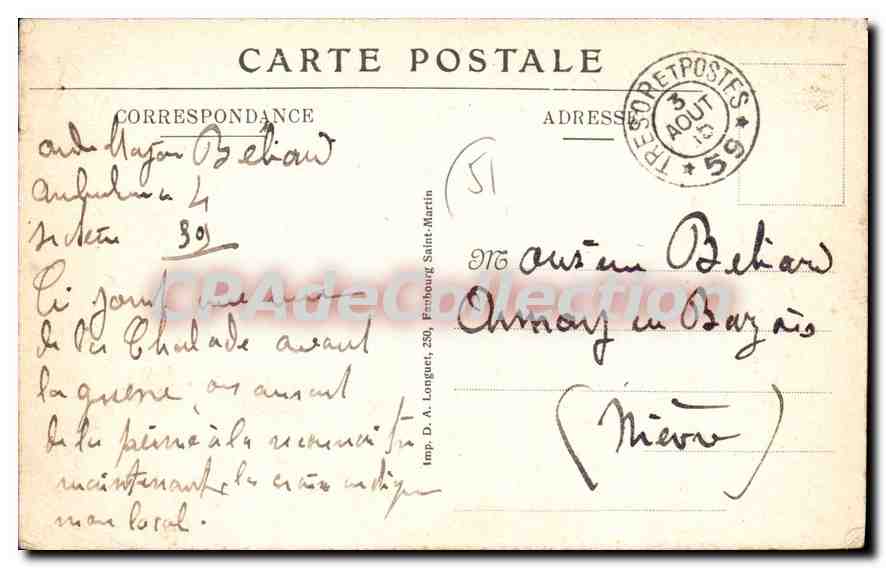 CARTE POSTALE
CORRESPONDANCE
ADRESSE
TRESOR ET POSTES
3
AOUT
15
* 59 *
51
Major Béliard
Ambulance 4
secteur 59
Ci joint une vue
de la Chalade avant
la guerre, on aurait
de la peine à la reconnaitre
maintenant, la croix indique
mon local.
Imp. D. A. Longuet, 250, Faubourg Saint-Martin
Monsieur Béliard
en Bazois
(Nièvre)
CPAdeCollection